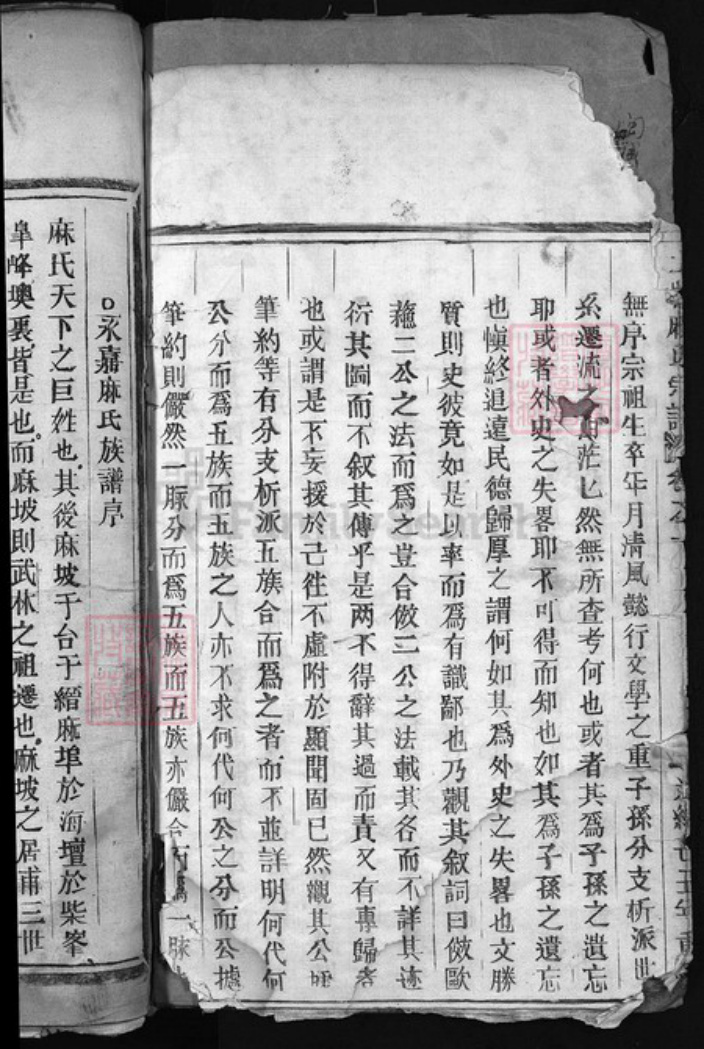 無序宗祖生卒年月清風懿行文學之重子孫分支析派世
系遷流茫匕然無所查考何也或者其為子孫之遺忘
耶或者外史之失畧耶不可得而知也如其為子孫之遺忘
也愼終追遠民德歸厚之謂何如其為外史之失畧也文勝
質則史彼竟如是以率而為有識鄙也乃觀其叙詞曰倣歐
蘓二公之法而為之豈合倣二公之法載其名而不詳其迹
衍其圖而不叙其傳乎是两不得辭其過而責又有專歸者
也或謂是不妄援於己徃不虛附於顯聞固已然觀其公
筆約等有分支析派五族合而為之者而不並詳明何代何
公分而為五族而五族之人亦不求何代何公之分而公據
筆約則儼然一脉分而為五族而五族亦儼合為一脉
永嘉麻氏族譜序
麻氏天下之巨姓也其後麻坡于台于縉麻埠於海壇於柴峯
皐峰墺裏皆是也而麻坡則武林之祖遷也麻坡之居甫三世